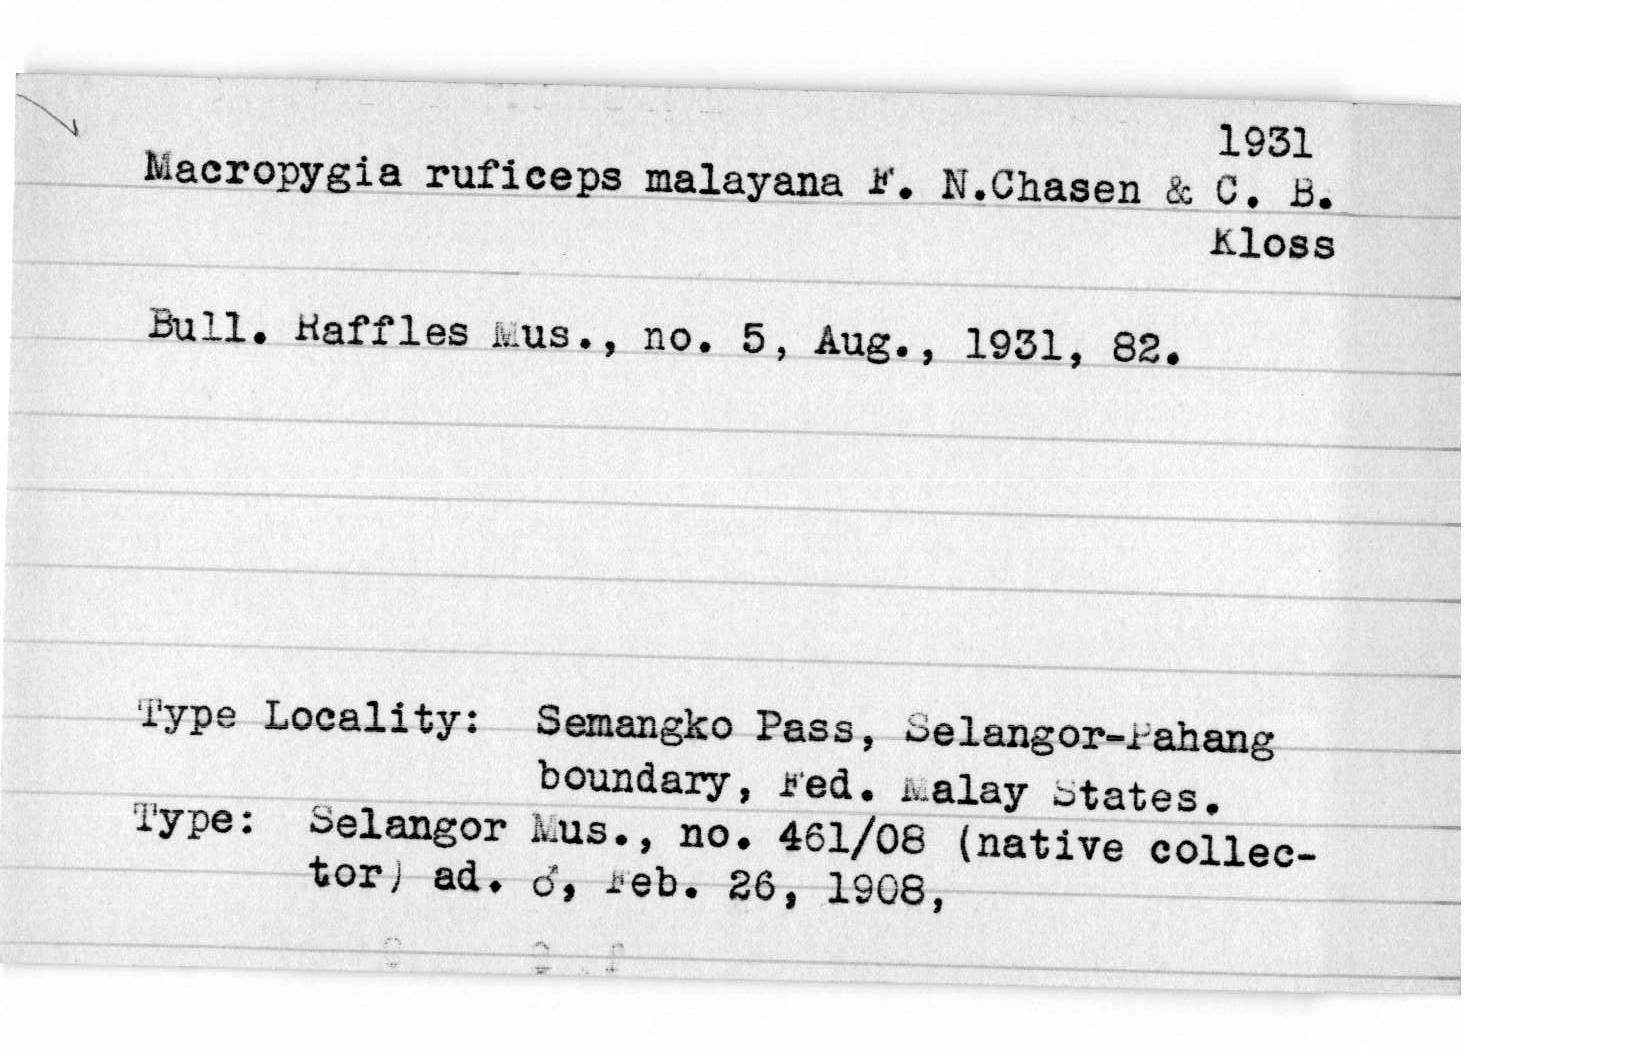 1931
Macropygia ruficeps malayana F. N.Chasen & C. B.
Kloss
Bull. Raffles Mus., no. 5, Aug., 1931, 82.
Type Locality: Semangko Pass, Selangor-Pahang
boundary, Fed. Malay States.
Type: Selangor Mus., no. 461/08 (native collec-
tor) ad. ♂, Feb. 26, 1908,